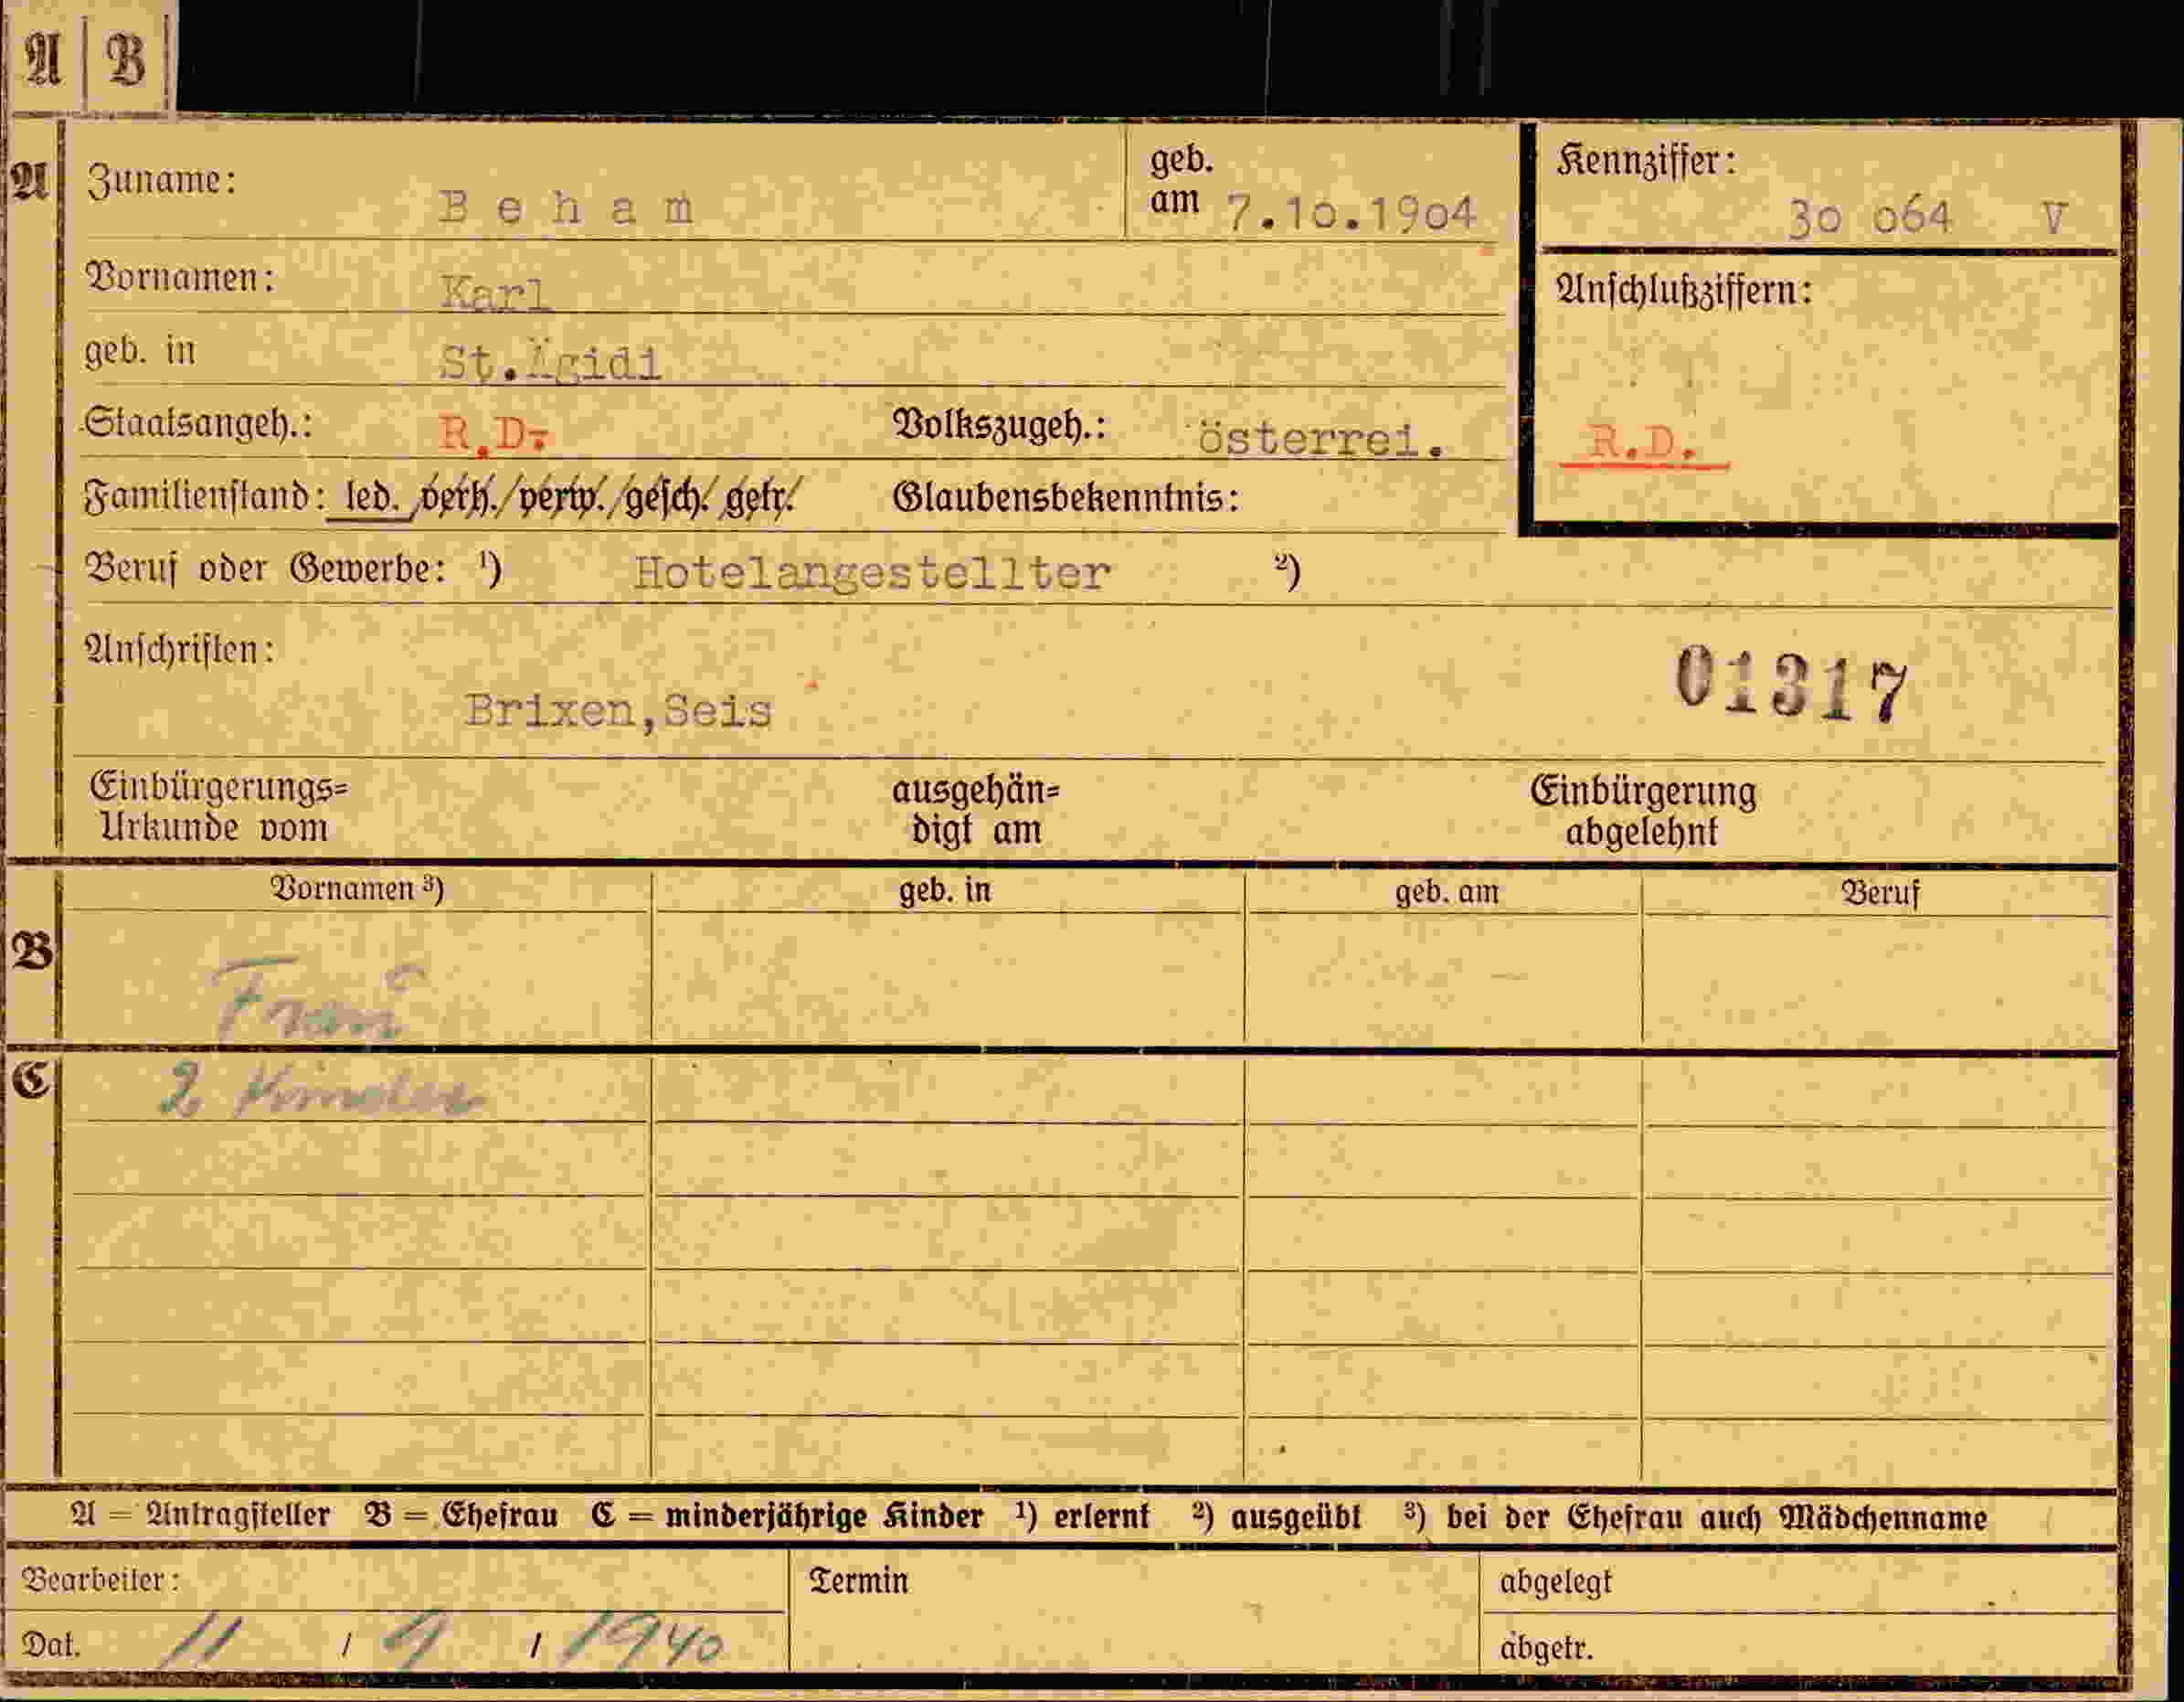 A B
A Zuname: Beham geb. am 7.10.1904 Kennziffer: 30 064 V
Vornamen: Karl Anschlußziffern:
geb. in St.Ägidi
Staatsangeh.: R.D. Volkszugeh.: österrei. R.D.
Familienstand: led. verh./verw./gesch. getr. Glaubensbekenntnis:
Beruf oder Gewerbe: ¹) Hotelangestellter ²)
Anschriften:
Brixen,Seis 01317
Einbürgerungs= ausgehän= Einbürgerung
Urkunde vom digt am abgelehnt
Vornamen ³) geb. in geb. am Beruf
B Frau
C 2 Kinder
A = Antragsteller B = Ehefrau C = minderjährige Kinder ¹) erlernt ²) ausgeübt ³) bei der Ehefrau auch Mädchenname
Bearbeiter: Termin abgelegt
Dat. 11 / 9 / 1940 abgetr.